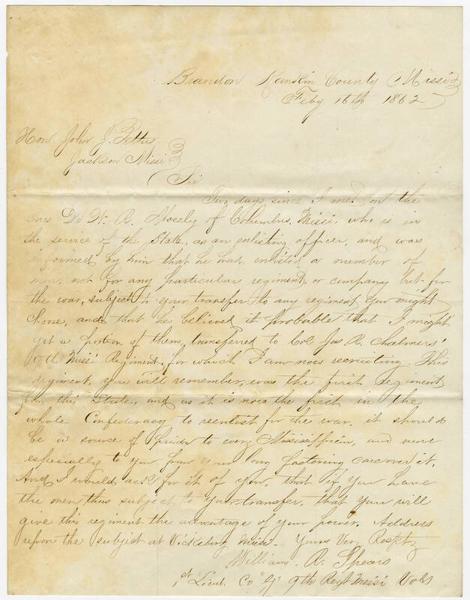 Brandon Rankin County Missi
Feby 16th 1862
Hon. John J. Pettus
Jackson Missi
Sir
Two days since I met on the
cars W. R. of Columbus, Missi. who is in
the service of the State, as an enlisting officer, and was
informed by him that he had enlisted a number of
men, not for any particular regiment, or company but for
the war, subject to your transfer to any regiment you might
chose, and that he believed it probable that I might
get a portion of them, transferred to Col. Jas. R. Chalmers'
Missi Regiment, for which I am now recruiting. This
regiment, you will remember, was the first regiment
from this State, and as it is now the first in the
whole Confederacy to reenlist for the war. it should
be a source of pride to every Mississippian, and more
especially to you from your long fostering care of it.
And I would ask for it of you, that if you have
the men thus subject to your transfer, that you will
give this regiment the advantage of your power. Address
me upon the subject at Missi. Yours Very Respty
William R. Spears
1st Lieut. Co "G" 9th Regt Missi Vols